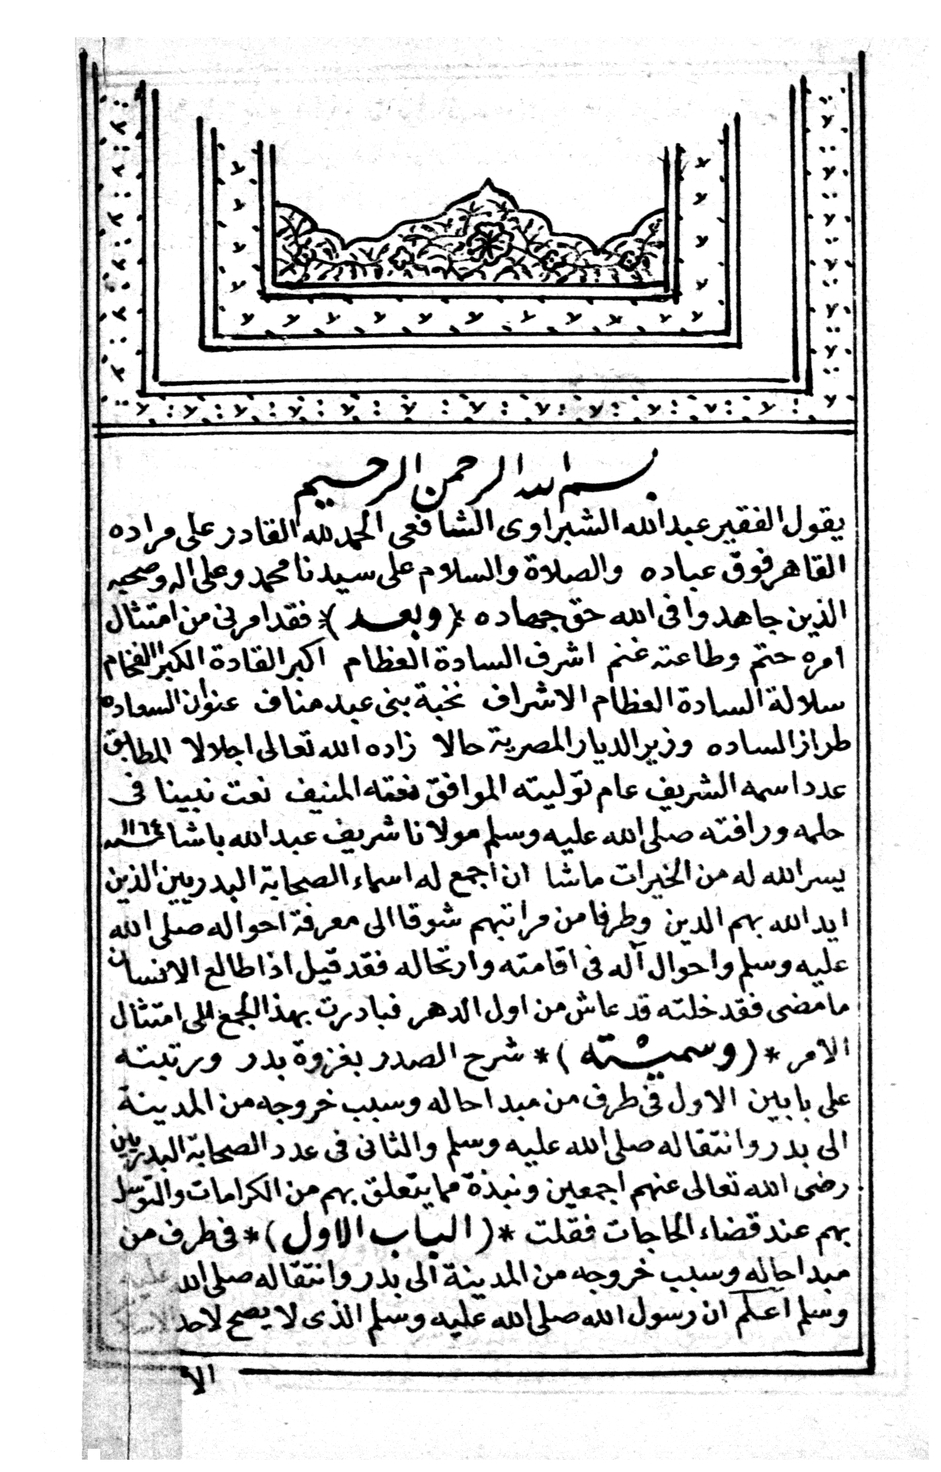 بسم الله الرحمن الرحيم
يقول الفقير عبد الله الشبراوى الشافعى الحمد لله القادر على مراده
القاهر فوق عباده والصلاة والسلام على سيدنا محمد وعلى اله وصحبه
الذين جاهدوا فى الله حق جهاده *(وبعد)* فقد امرنى من امتثال
امره حتم وطاعته غنم اشرف السادة العظام اكبر القادة الكبرا الفخام
سلالة السادة العظام الاشراف نخبة بنى عبد مناف عنوان السعاده
طراز الساده وزير الديار المصرية حالا زاده الله تعالى اجلالا المطابق
عدد اسمه الشريف عام توليته الموافق نعته المنيف نعت نبينا فى
حلمه ورافته صلى الله عليه وسلم مولانا شريف عبد الله باشا سنة ١١٦٤
يسر الله له من الخيرات ماشا ان اجمع له اسماء الصحابة البدريين الذين
ايد الله بهم الدين وطرفا من مراتبهم شوقا الى معرفة احواله صلى الله
عليه وسلم واحوال آله فى اقامته وارتحاله فقد قيل اذا طالع الانسان
مامضى فقد خلته قد عاش من اول الدهر فبادرت بهذا الجمع الى امتثال
الامر *(وسميته)* شرح الصدر بغزوة بدر ورتبته
على بابين الاول فى طرف من مبدا حاله وسبب خروجه من المدينة
الى بدر وانتقاله صلى الله عليه وسلم والثانى فى عدد الصحابة البدريين
رضى الله تعالى عنهم اجمعين ونبذة مما يتعلق بهم من الكرامات والتوسل
بهم عند قضاء الحاجات فقلت *(الباب الاول)* فى طرف من
مبدا حاله وسبب خروجه من المدينة الى بدر وانتقاله صلى الله عليه
وسلم اعلم ان رسول الله صلى الله عليه وسلم الذى لا يصح لاحد
الا